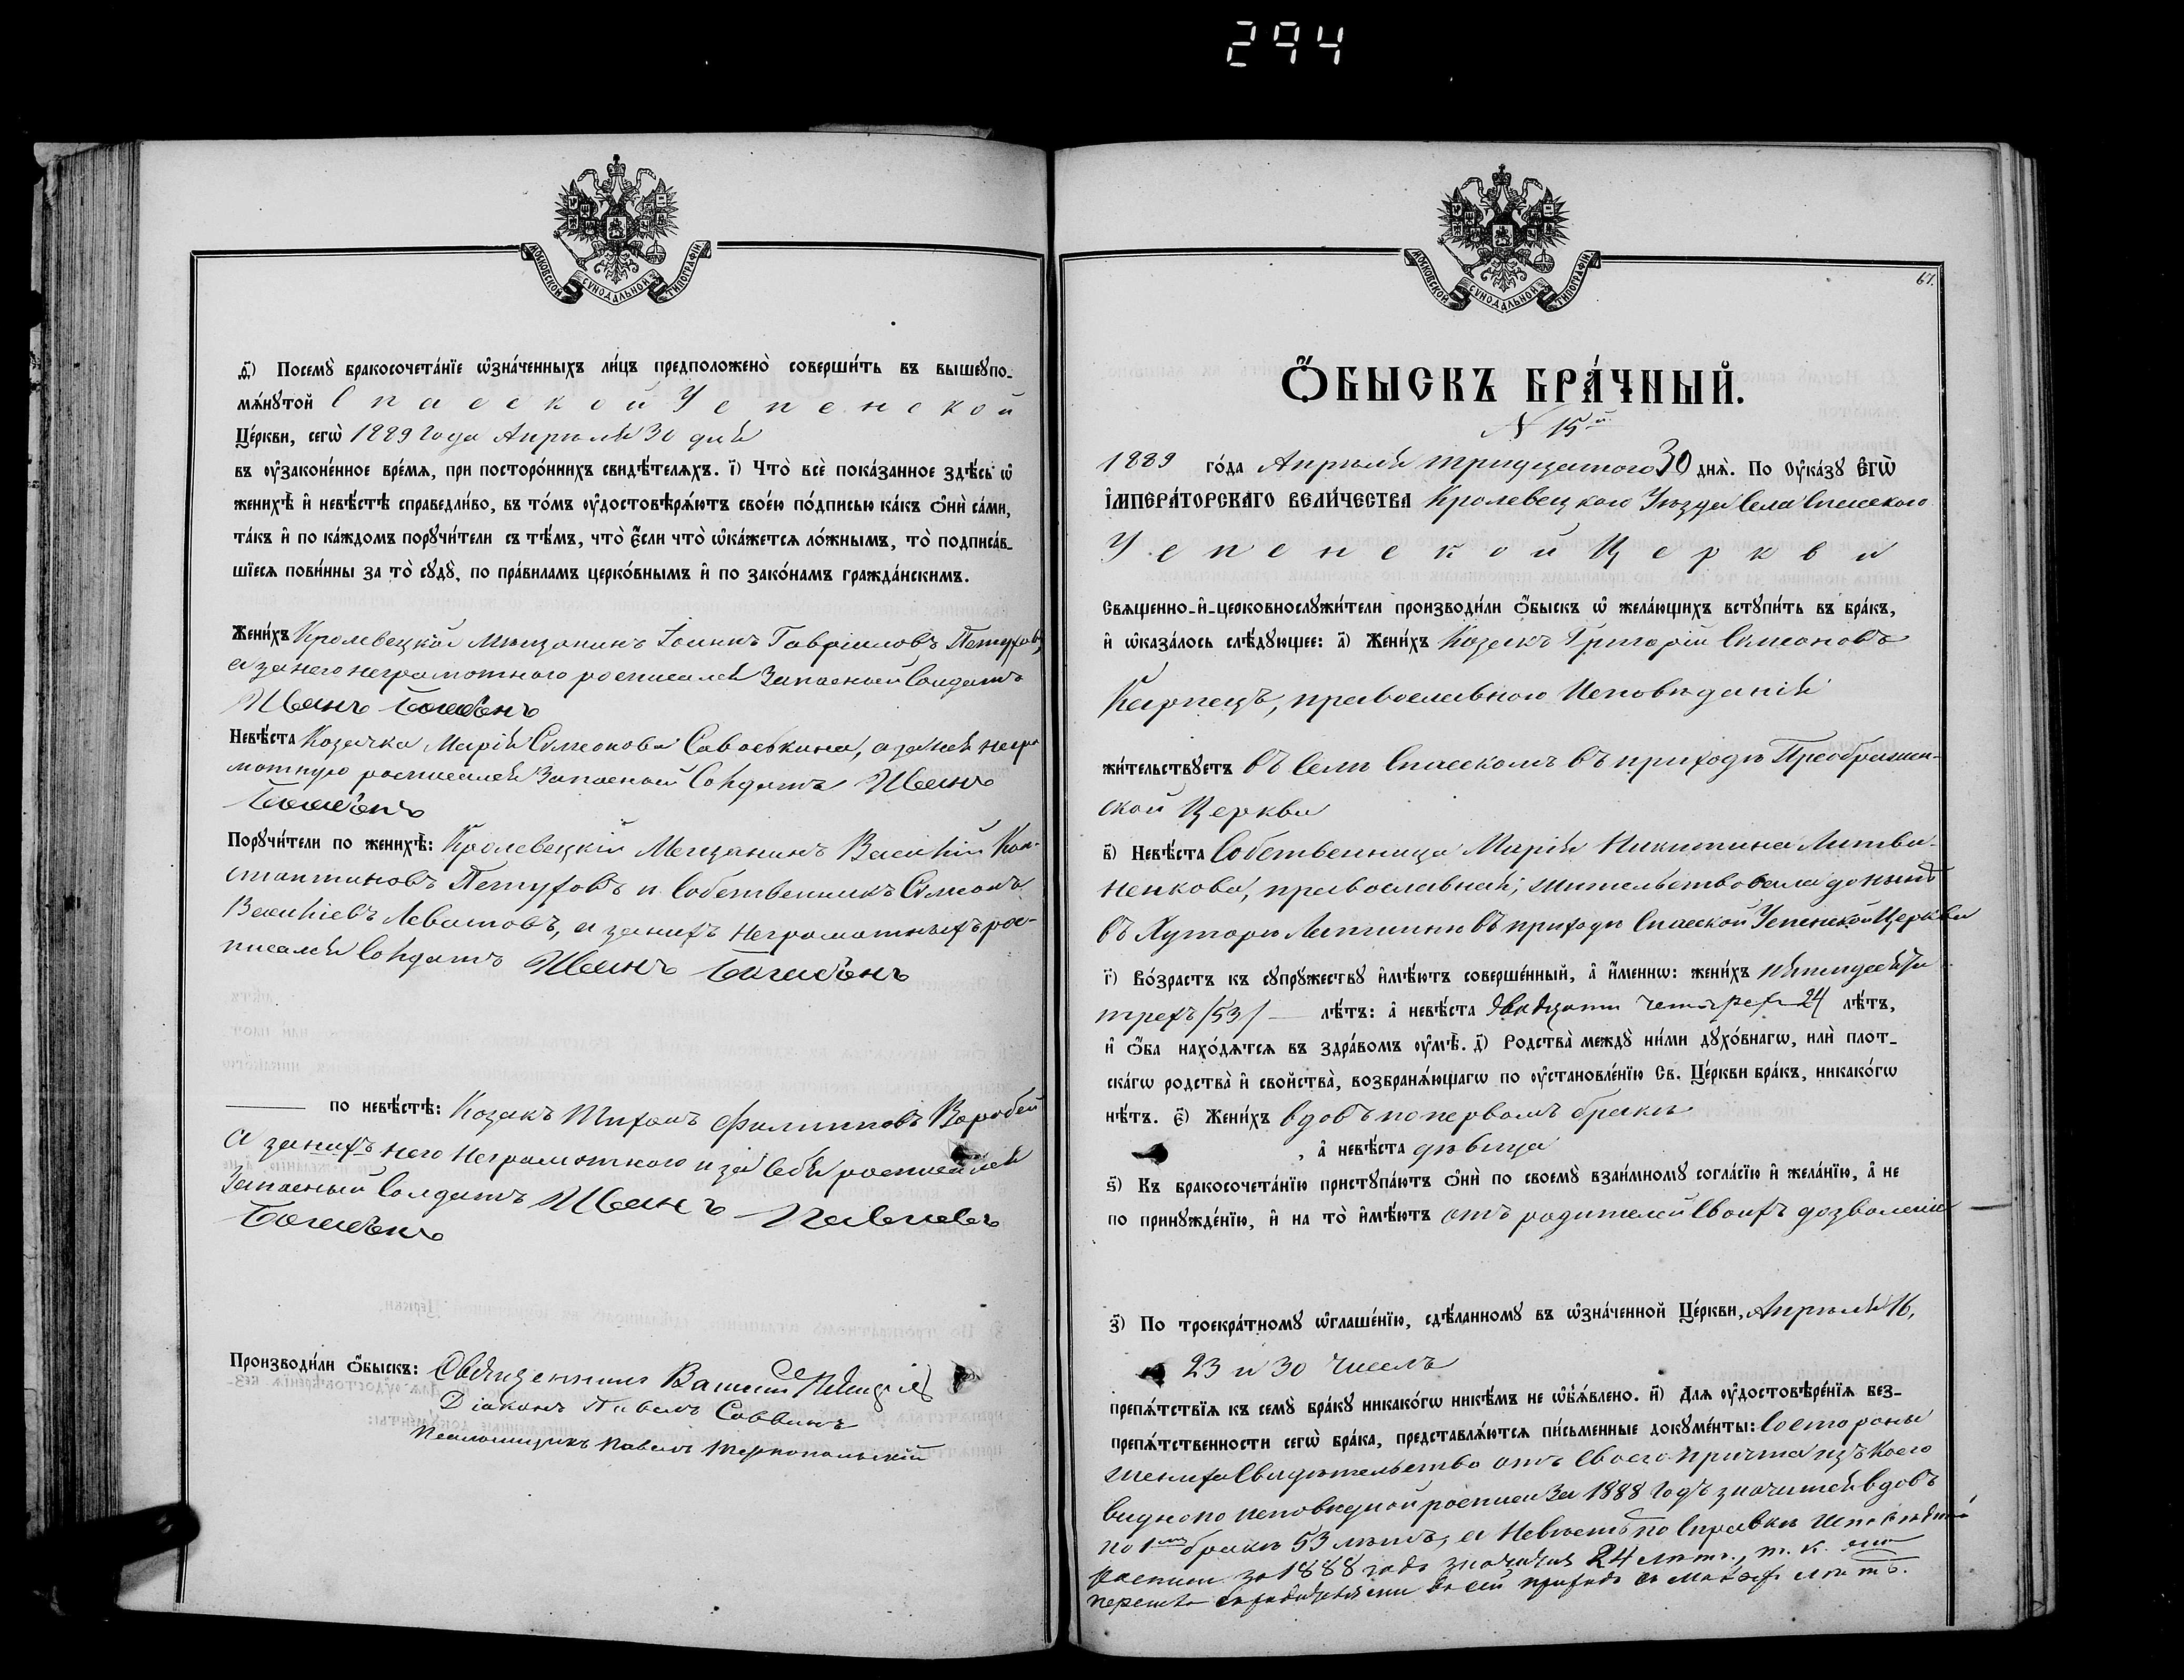 294
МОСКОВСКОЙ СѴНОДАЛЬНОЙ ТИПОГРАФІИ
д҃і) Посемꙋ̀ бракосочета́нїе ѡ҆зна́ченныхъ ли́цъ предположено̀ соверши́ть въ вышеꙋпо-
мѧ́нꙋтой Спасской Успенской
Це́ркви, сегѡ̀ 1889 года Апрѣля 30 дня
въ ᲂу҆законе́нное вре́мѧ, при посторо́ннихъ свидѣ́телѧхъ. і҃) Что̀ всѐ пока́занное здѣ́сь ѡ҆
женихѣ̀ и҆ невѣ́стѣ справедли́во, въ то́мъ ᲂу҆достовѣрѧ́ютъ свое́ю по́дписью ка́къ ѻ҆нѝ са́ми,
та́къ и҆ по ка́ждомъ порꙋчи́тели съ тѣ́мъ, что̀ є҆́сли что̀ ѡ҆ка́жетсѧ ло́жнымъ, то̀ подписа́в-
шїесѧ пови́нны за то̀ сꙋдꙋ̀, по пра́виламъ церко́внымъ и҆ по зако́намъ гражда́нскимъ.
Жени́хъ Кролевецкій Мѣщанинъ Іоаннъ Гавріиловъ Петухов,
а за него неграмотного росписался Запасный Солдатъ
Иванъ
Невѣ́ста Козачка Марія Симеонова а за ней негра
мотную росписался Запасный Солдатъ Иванъ
Порꙋчи́тели по женихѣ̀: Кролевецкій Мещанинъ Василій Кон-
стантиновъ Петуховъ и Собственникъ Симеонъ
Василіевъ Леватовъ, а за нихъ Неграмотныхъ рос-
писался Солдатъ Иванъ
по невѣ́стѣ: Козакъ Тихонъ Филипповъ Воробей
а за нихъ него Неграмотного и за себя росписался
Запасный Солдатъ Иванъ Павловъ
Производи́ли ѻ҆́быскъ: Священникъ
Діаконъ Павелъ Саввинъ
Псаломщикъ Павелъ Тернопольскій
МОСКОВСКОЙ СѴНОДАЛЬНОЙ ТИПОГРАФІИ
67.
Ѻ҆́БЫСКЪ БРА́ЧНЫЙ.
N 15й
1889 го́да Апрѣля тридцатого 30 днѧ̀. По Оу҆ка́зꙋ Є҆гѡ̀
І҆МПЕРА́ТОРСКАГО ВЕЛИ́ЧЕСТВА Кролевецкого Уѣзда Села Спасского
Успенской Церкви
Свѧщенно-и҆-церковнослꙋжи́тели производи́ли ѻ҆́быскъ ѡ҆ жела́ющихъ встꙋпи́ть въ бра́къ,
и҆ ѡ҆каза́лось слѣ́дꙋющее: а҃) Жени́хъ Козакъ Григорій Симеоновъ
Карпецъ, православного Исповѣданія
жи́тельствꙋетъ въ Селѣ Спасскомъ въ приходѣ Преображен-
ской Церкви
в҃) Невѣ́ста Собственница Марія Никитина Литви-
ненкова, православная, жительствовала донынѣ
въ Хуторѣ въ приходѣ Спасской Успенской Церкви
г҃) Во́зрастъ къ сꙋпрꙋ́жествꙋ и҆мѣ́ютъ соверше́нный, а҆ и҆́меннѡ: жени́хъ пятидесяти
трехъ /53/ лѣ́тъ: а҆ невѣ́ста двадцати четырех 24 лѣ́тъ,
и҆ ѻ҆́ба нахо́дѧтсѧ въ здра́вомъ ᲂу҆мѣ̀. д҃) Родства̀ междꙋ̀ ни́ми дꙋхо́внагѡ, и҆лѝ плот-
ска́гѡ родства̀ и҆ сво́йства, возбранѧ́ющагѡ по ᲂу҆становле́нїю Св. Це́ркви бра́къ, никако́гѡ
нѣ́тъ. є҃) Жени́хъ вдовъ по первомъ бракѣ
, а҆ невѣ́ста дѣвица
ѕ҃) Къ бракосочета́нїю пристꙋпа́ютъ ѻ҆нѝ по своемꙋ̀ взаи́мномꙋ согла́сїю и҆ жела́нїю, а҆ не
по принꙋжде́нїю, и҆ на то̀ и҆мѣ́ютъ отъ родителей своихъ дозволеніе
з҃) По троекра́тномꙋ ѡ҆глаше́нїю, сдѣ́ланномꙋ въ ѡ҆зна́ченной Це́ркви, Апрѣля 16,
23 и 30 чиселъ
препѧ́тствїѧ къ семꙋ̀ бра́кꙋ никако́гѡ никѣ́мъ не ѡ҆б̾ѧ́влено. и҃) Длѧ ᲂу҆достовѣре́нїѧ без-
препѧ́тственности сегѡ̀ бра́ка, представлѧ́ютсѧ пи́сьменные докꙋме́нты: Со стороны
жениха Свидѣтельство отъ Своего причта изъ коего
видно по исповѣдной росписи за 1888 годъ значится вдовъ
по 1мъ бракѣ 53 лѣтъ, а Невѣста по Справкѣ Исповѣдной
росписи за 1888 годъ значится 24 лѣтъ, т. к. она